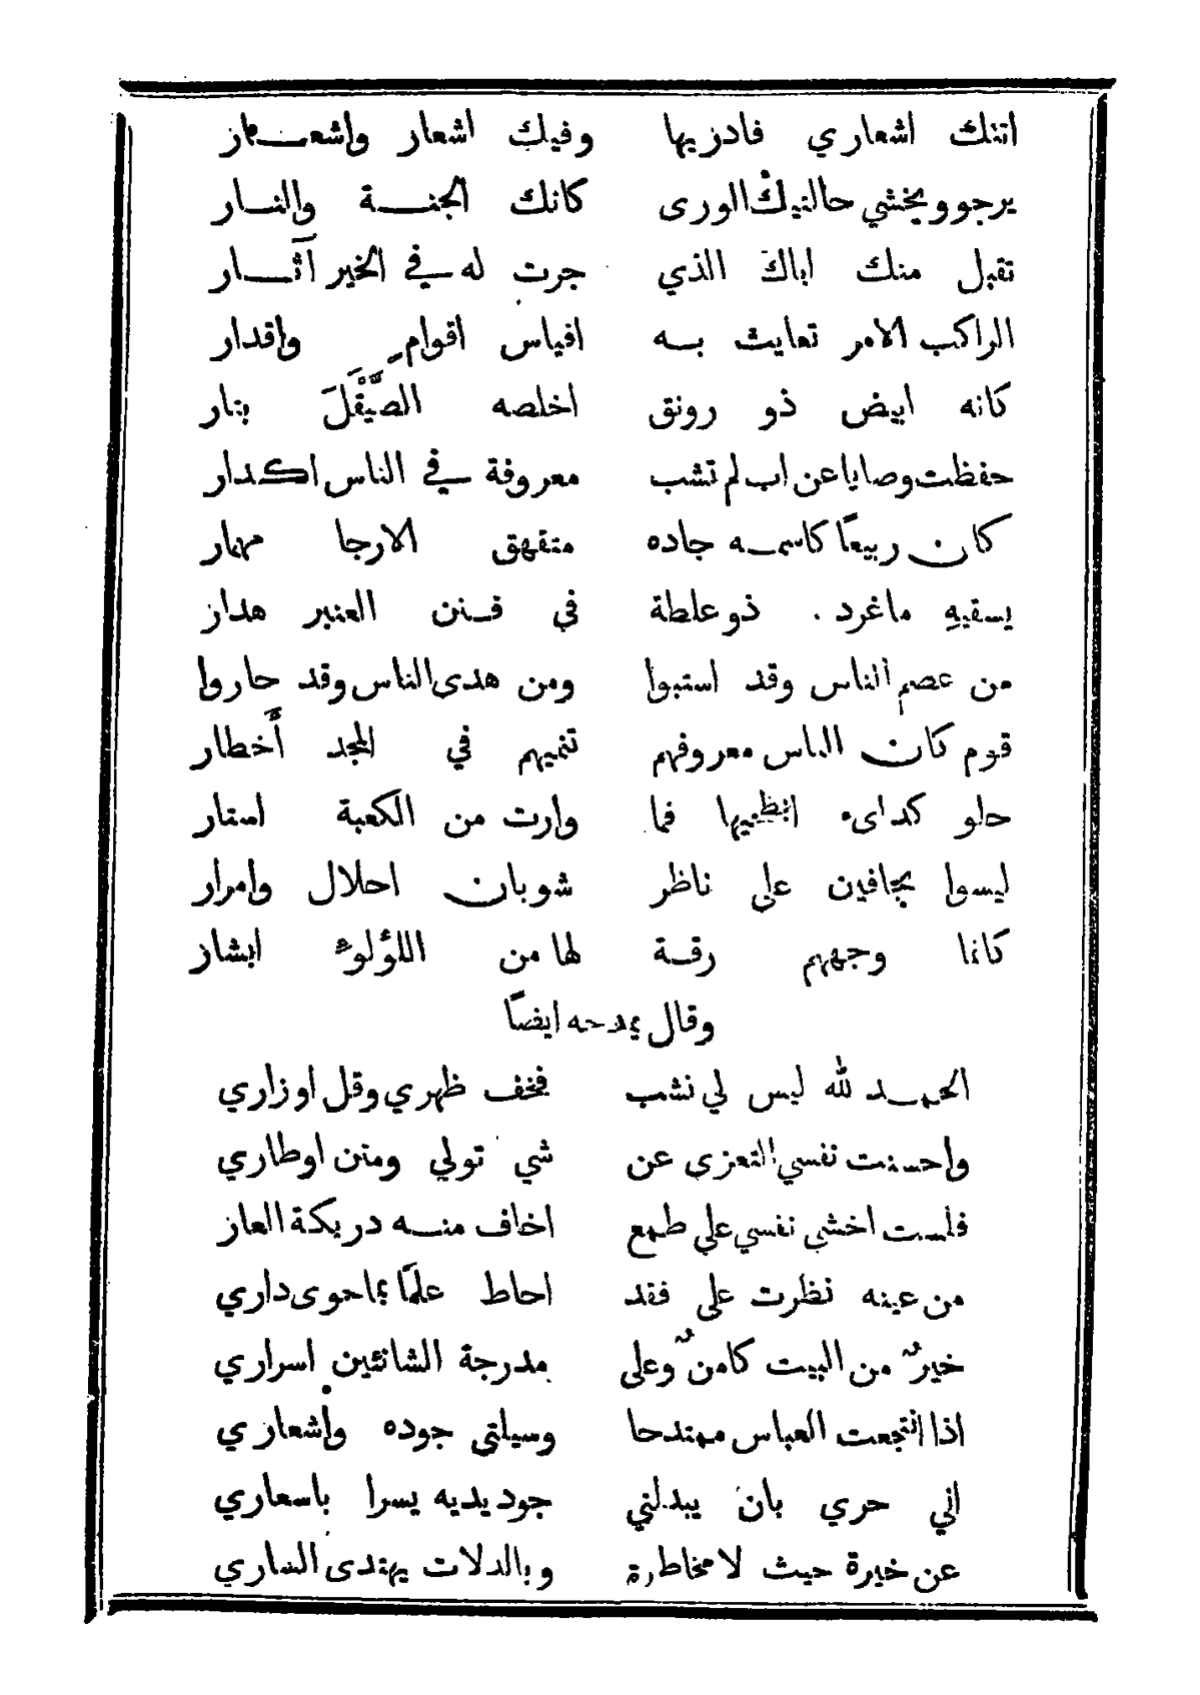 اتنك اشعاري فادزيها وفيك اشعار واشعار
يرجو ويخشي حالتيك الورى كانك الجنة والنار
تقبل منك اباك الذي جرت له في الخير آثار
الراكب الامر تعايت به افياس اقوام واقدار
كانه ابيض ذو رونق اخلصه الصيقل بتار
حفظت وصايا عن اب لم تشب معروفة في الناس اكدار
كان ربيعًا كاسمه جاده منفهق الارجا مهمار
يسقيه ماغرد ذو علطة في فنن العنبر هدار
من عصم الناس وقد استبوا ومن هدى الناس وقد حاروا
قوم كان الناس معروفهم تنميهم في المجد أخطار
حلو كداىء ابظبيها فما وارت من الكعبة استار
ليسوا بجافين على ناظر شوبان احلال وامرار
كانما وجههم رقة لها من اللؤلوء ابشار
وقال يمدحه ايضًا
الحمد لله ليس لي نشب فخف ظهري وقل اوزاري
واحسنت نفسي التعزى عن شي تولي ومتن اوطاري
فلست اخشى نفسي علي طمع اخاف منه دريكة العار
من عينه نظرت على فقد احاط علمًا بما حوى داري
خير من البيت كامن وعلى مدرجة الشانئين اسراري
اذا انتجعت العباس ممتدحا وسيلتي جوده وأشعاري
اني حري بان يبدلني جود يديه يسرا باسعاري
عن خيرة حيث لا مخاطرة وبالدلات يهتدى الساري